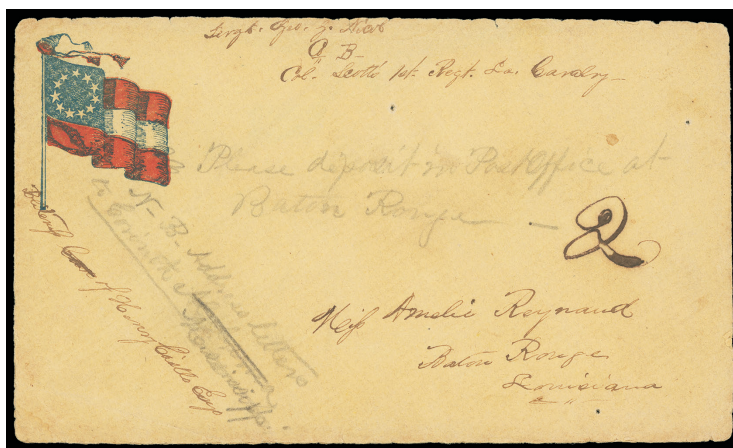 Sergt. Geo. Y.
Co. B
Col. Scott's 1st. Regt. La. Cavalry
Please deposit in PostOffice at
Baton Rouge
N. B. Address letters
to Corinth
Mississippi
2
Care of Henry
Miss Amelie Reynaud
Baton Rouge
Louisiana